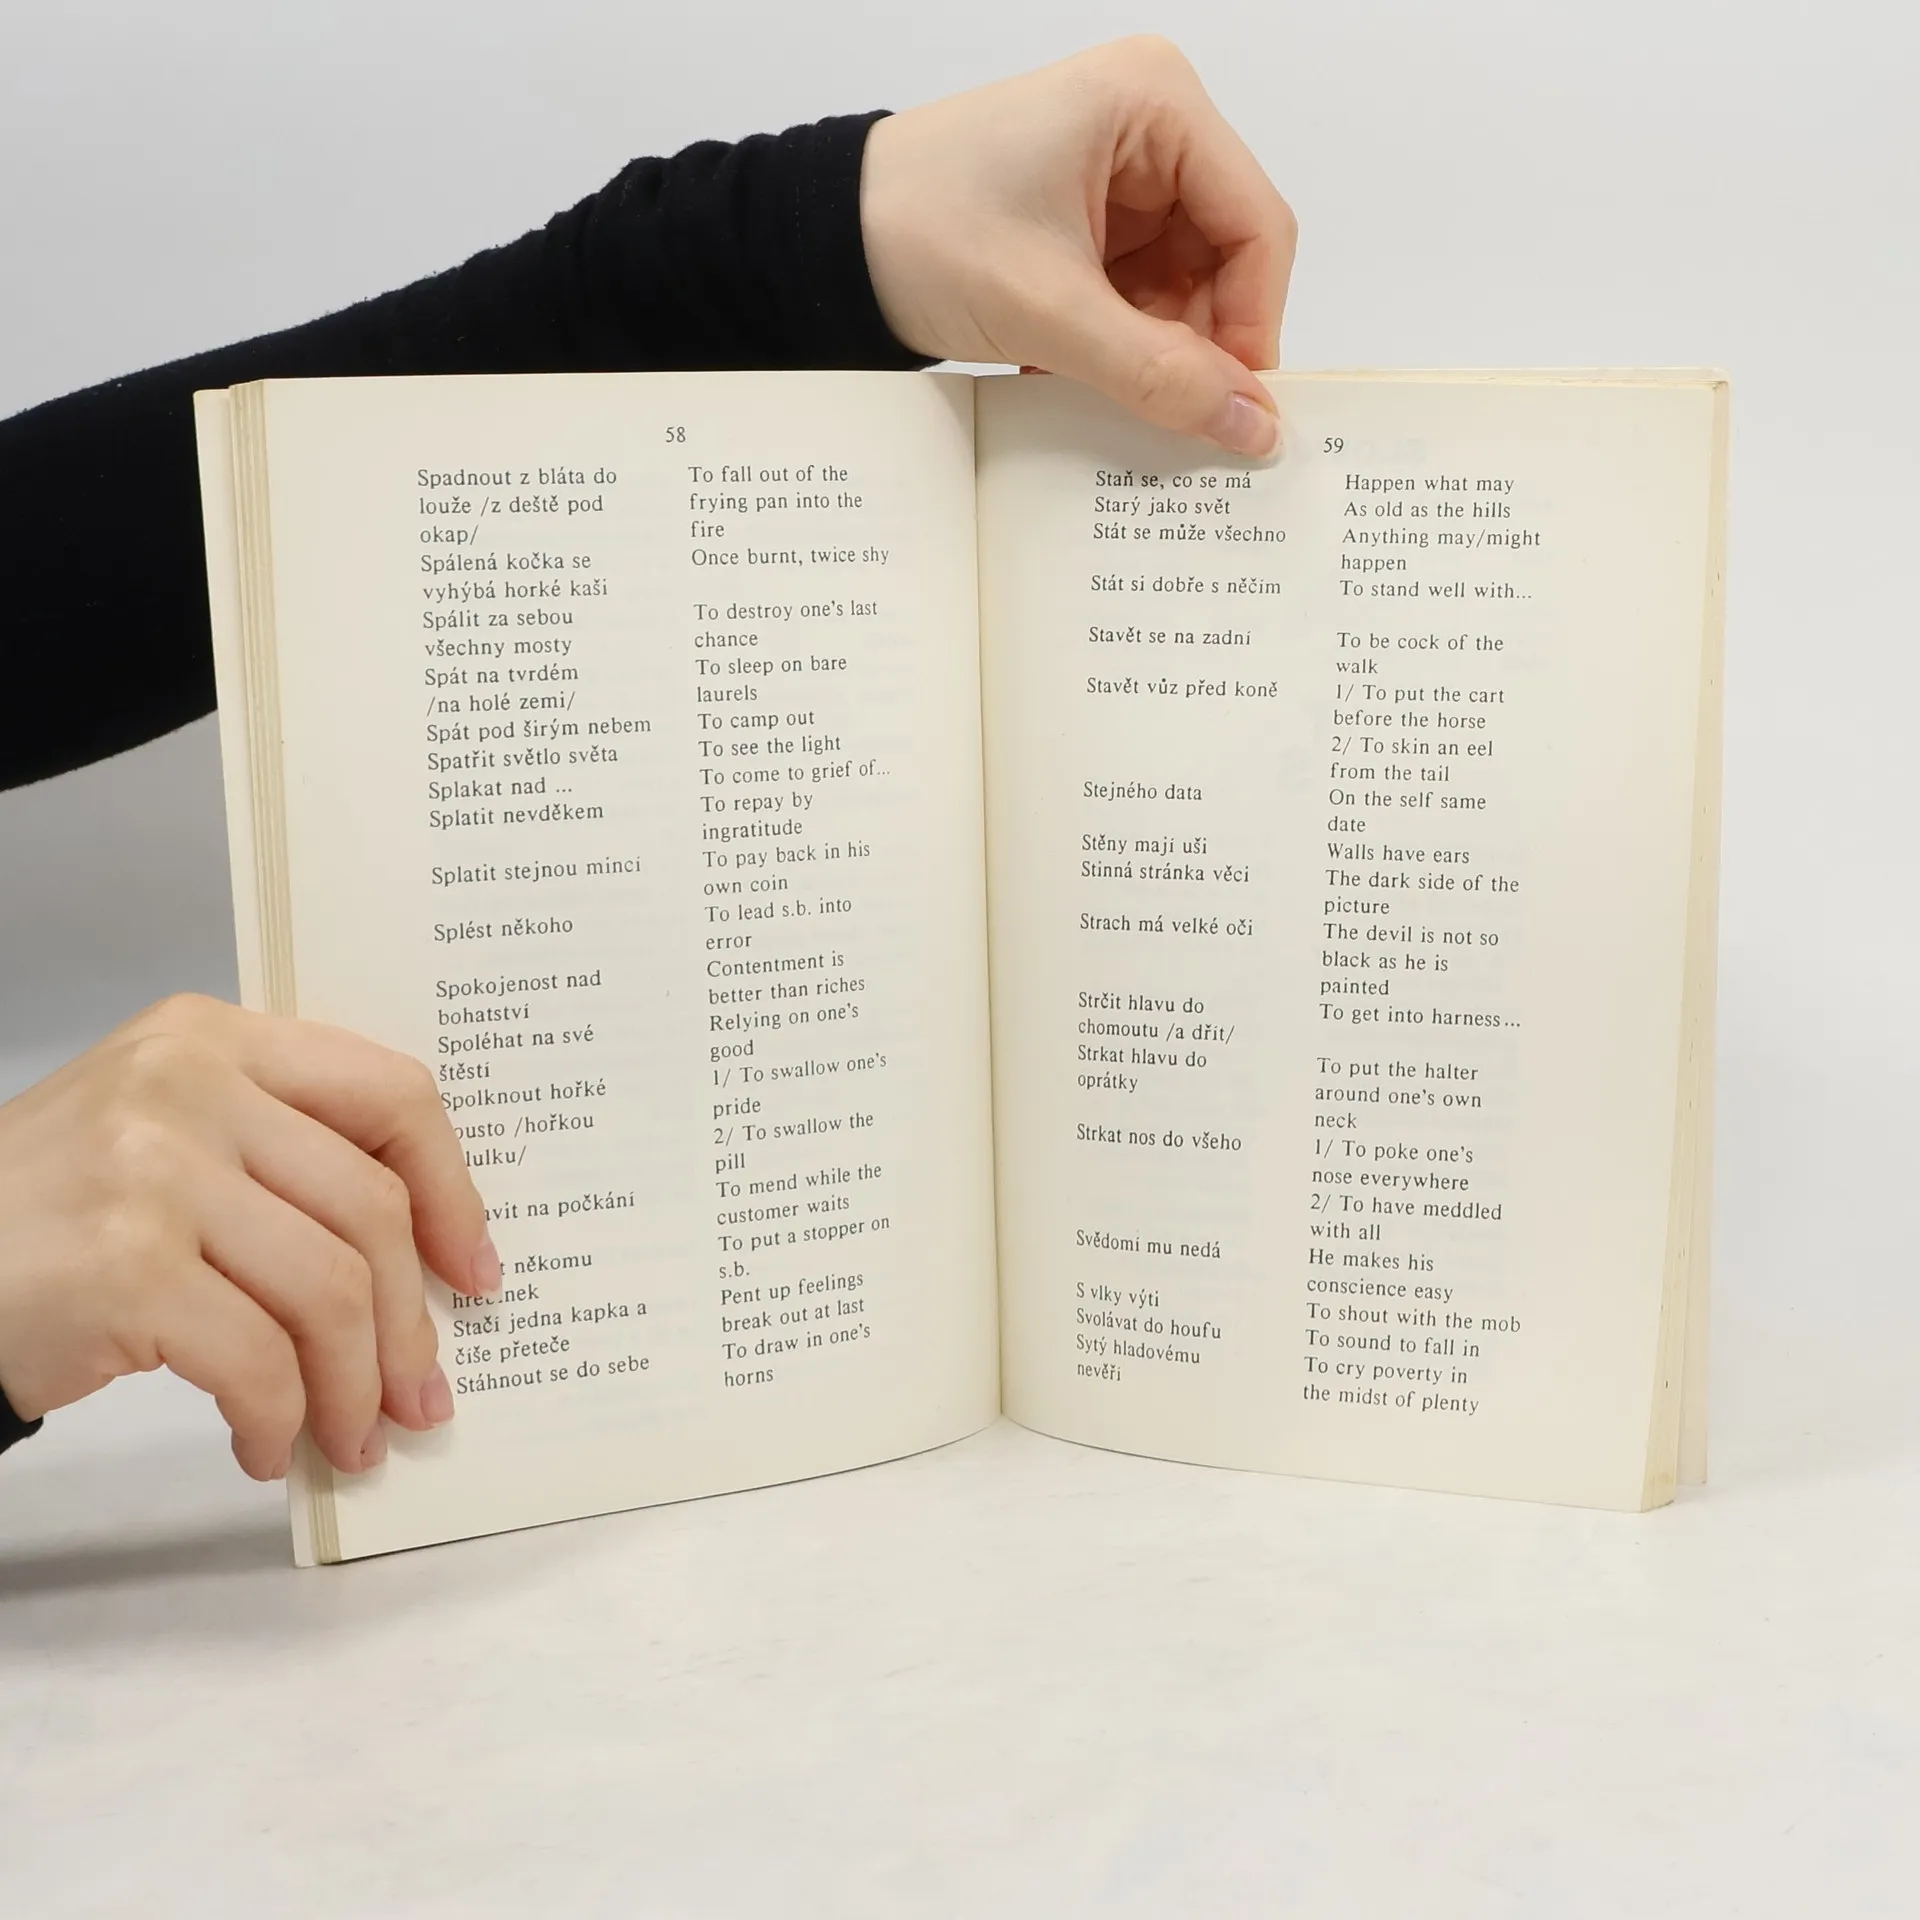 58
Spadnout z bláta do
louže /z deště pod
okap/
Spálená kočka se
vyhýbá horké kaši
Spálit za sebou
všechny mosty
Spát na tvrdém
/na holé zemi/
Spát pod širým nebem
Spatřit světlo světa
Splakat nad ...
Splatit nevděkem
Splatit stejnou mincí
Splést někoho
Spokojenost nad
bohatství
Spoléhat na své
štěstí
Spolknout hořké
/hořkou
na počkání
někomu
Stačí jedna kapka a
číše přeteče
Stáhnout se do sebe
To fall out of the
frying pan into the
fire
Once burnt, twice shy
To destroy one's last
chance
To sleep on bare
laurels
To camp out
To see the light
To come to grief of...
To repay by
ingratitude
To pay back in his
own coin
To lead s.b. into
error
Contentment is
better than riches
Relying on one's
good
1/ To swallow one's
pride
2/ To swallow the
pill
To mend while the
customer waits
To put a stopper on
s.b.
Pent up feelings
break out at last
To draw in one's
horns
59
Staň se, co se má
Starý jako svět
Stát se může všechno
Stát si dobře s něčím
Stavět se na zadní
Stavět vůz před koně
Stejného data
Stěny mají uši
Stinná stránka věci
Strach má velké oči
Strčit hlavu do
chomoutu /a dřít/
Strkat hlavu do
oprátky
Strkat nos do všeho
Svědomí mu nedá
S vlky výti
Svolávat do houfu
Sytý hladovému
nevěří
Happen what may
As old as the hills
Anything may/might
happen
To stand well with...
To be cock of the
walk
1/ To put the cart
before the horse
2/ To skin an eel
from the tail
On the self same
date
Walls have ears
The dark side of the
picture
The devil is not so
black as he is
painted
To get into harness...
To put the halter
around one's own
neck
1/ To poke one's
nose everywhere
2/ To have meddled
with all
He makes his
conscience easy
To shout with the mob
To sound to fall in
To cry poverty in
the midst of plenty